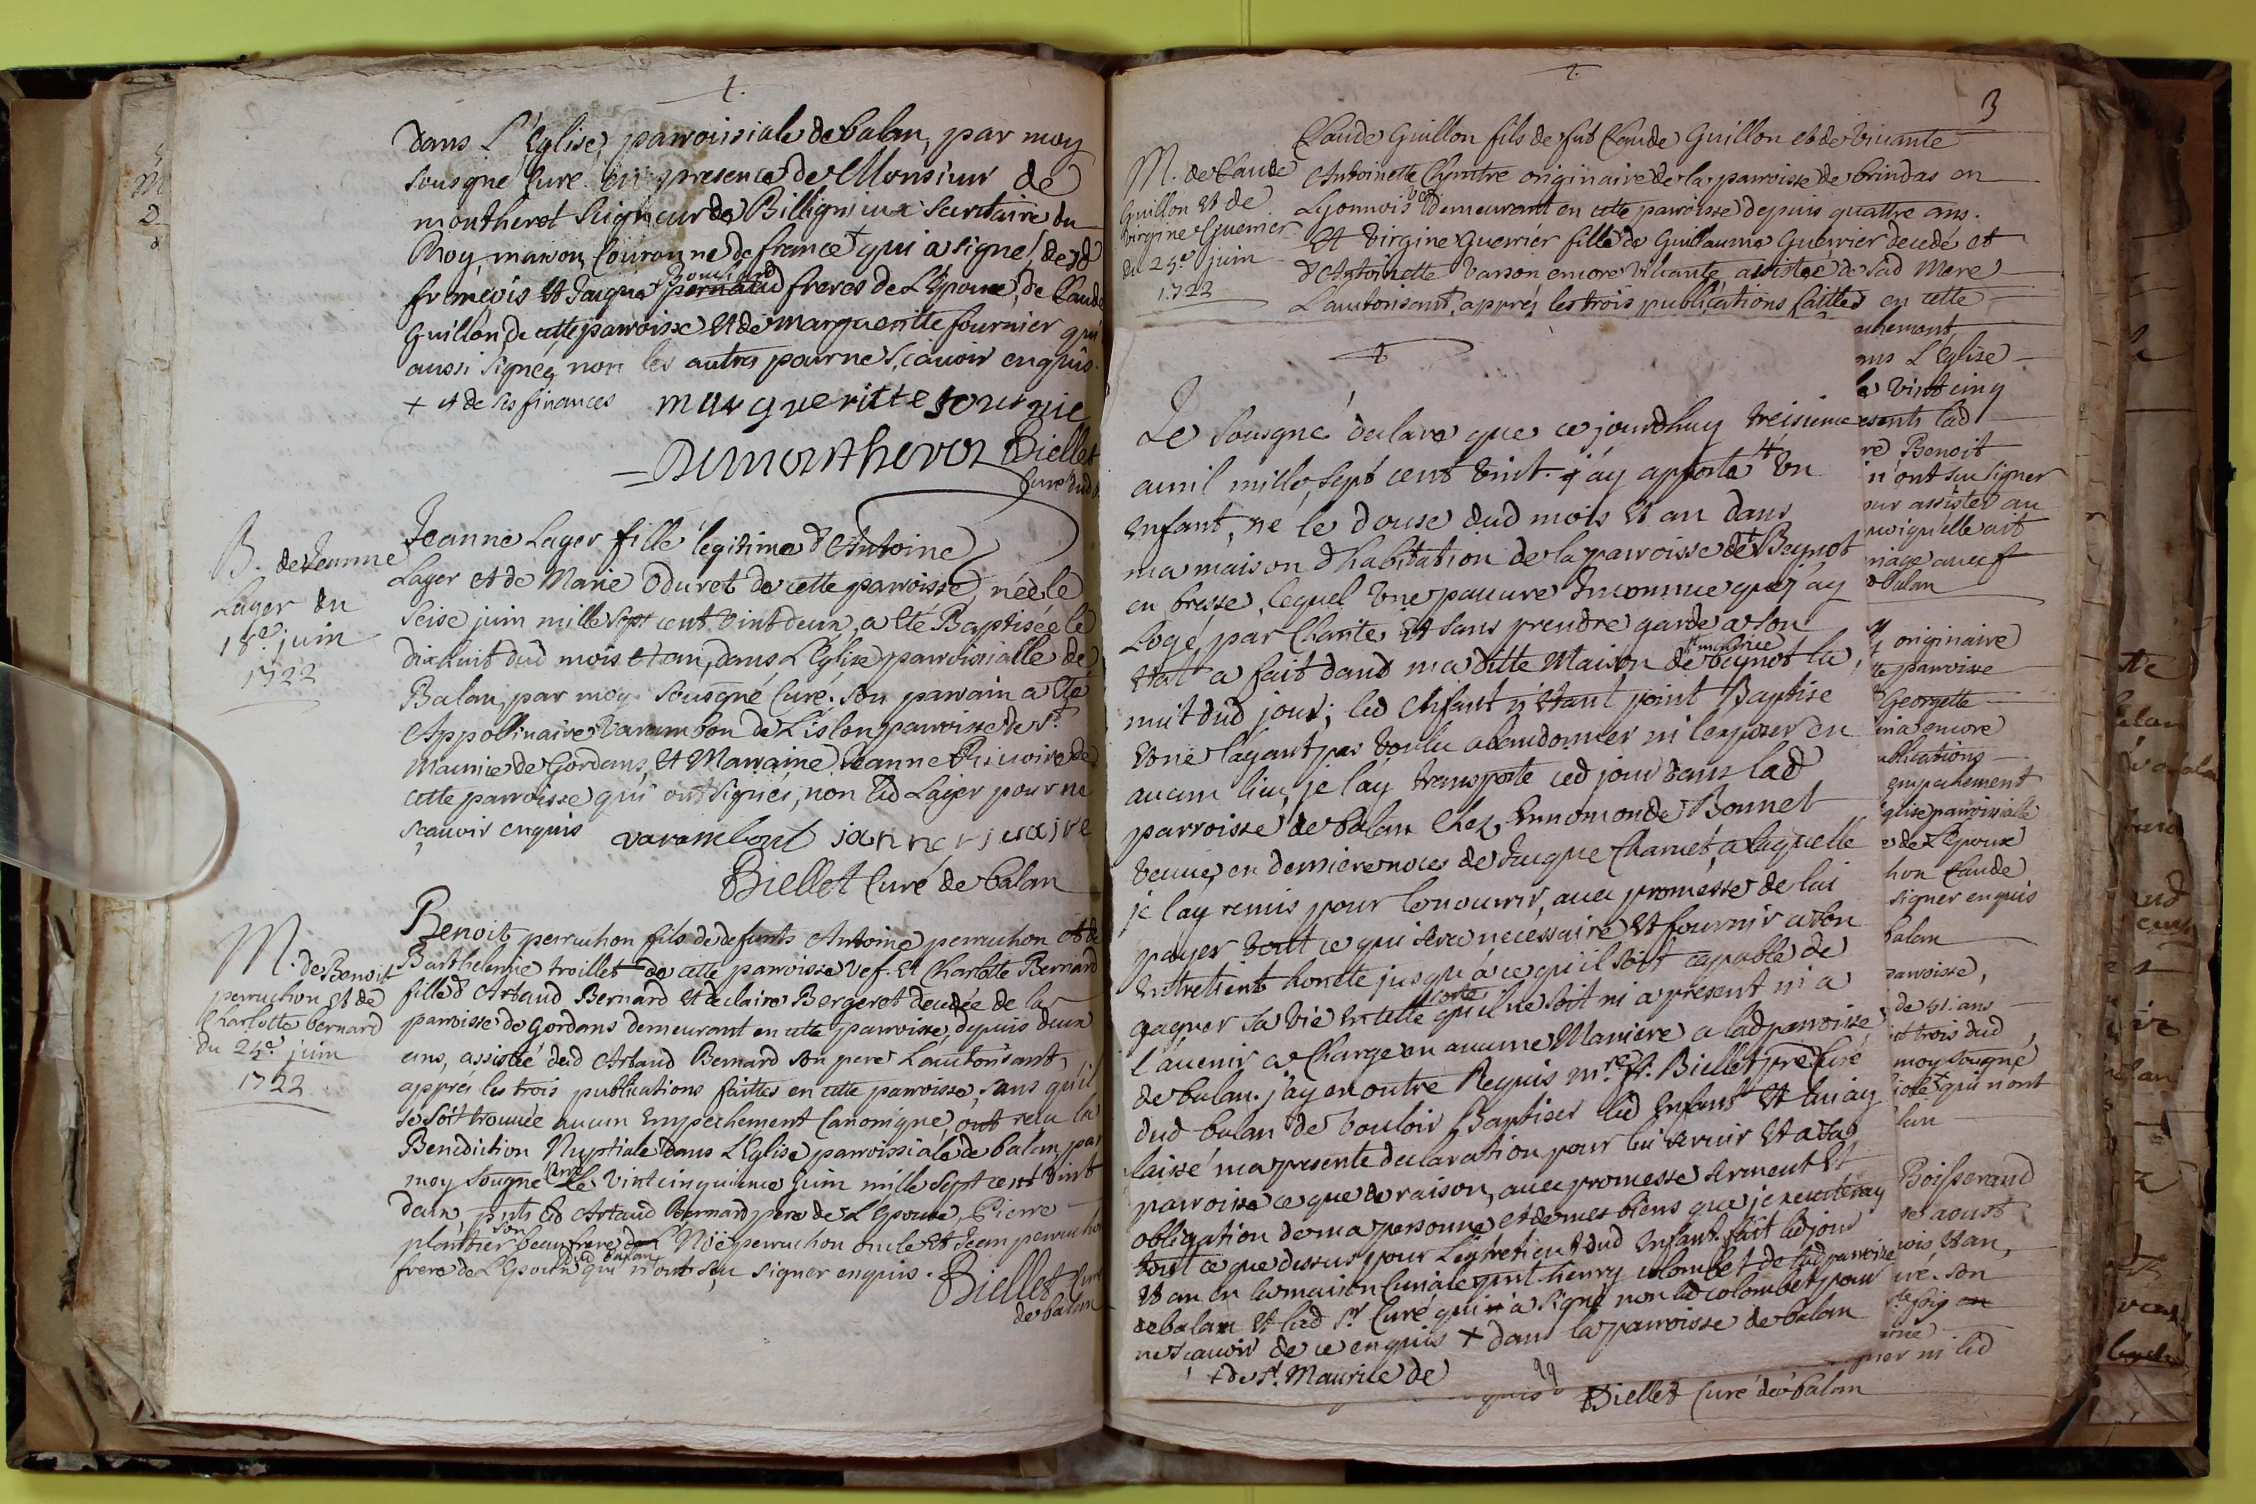 t.
dans L'Eglise parroissiale de balan, par moy
sousigné Curé en presence de Monsieur de
montherot Seigneur de Billigneux Secretaire du
Roy, maison, Couronne de france + qui a signé, de
francois Et Jacque Bouchard pernaud freres de L'Epouse, de Claude
Guillon de cette parroisse Et de margueritte fournier qui
aussi signéz, non les autres pour ne scavoir enquis.
+ et de ses finances margueritte fournie
Demontherot Biellet
Curé dud
B. de Jeanne
Lager du
18.e juin
1722
Jeanne Lager fille légitime d'Antoine
Lager et de Marie Oduret de cette parroisse, née le
Seise juin mille sept cent vint deux, a Eté Baptisée le
dixhuit dud mois et an, dans L'Eglise parroissialle de
Balan, par moy sousigné Curé. Son parrain a Eté
Appollinaire Varambon de L'islon parroisse de St.
Maurice de Gordans, Et Marraine Jeanne de
cette parroisse qui ont signés, non led Lager pour ne
sçavoir enquis varambont
Biellet Curé de balan
M. de Benoit
perruchon Et de
Charlotte bernard
du 25.e juin
1722
Benoit perruchon fils de defunts Antoine perruchon Et de
Barthelemie troillet de cette parroisse Vef. Et Charlotte Bernard
fille d'Artaud Bernard Et de claire Bergerot decedée de la
parroisse de Gordans demeurant en cette parroisse depuis deux
ans, assistée dud Artaud Bernard son pere L'autorisant,
apprés les trois publications faittes en cette parroisse, sans qu'il
se soit trouvée aucun Empechement Canonique, ont reçu la
Benediction Nuptiale dans L'Eglise parroissiale de balan, par
moy sousigné Curé le vint cinquieme juin mille sept cent vint
deux pnts led Artaud Bernard pere de L'Epouse, Pierre
plantier son beaufrere Noë perruchon oncle Et Jean perruchon
frere de L'Epoux dud balan qui n'ont sçu signer enquis. Biellet Curé
de balan
t.
3
M. de Claude
Guillon Et de
Virgine Guerrier
du 25.e juin
1722
Claude Guillon fils de fut Claude Guillon et de vivante
Antoinette originaire de la parroisse de brindas en
Lyonnois demeurant en cette parroisse depuis quattre ans.
Et Virgine Guerrier fille de Guillaume Guerrier decedé et
d'Antoinette Varson encore vivante, assistée de sad Mere
L'autorisant, apprés les trois publications faittes en cette
Je sousigné declare que ce jourdhuy treisieme
avril mille sept cent vint. j'ay apporté + Un
Enfant, né le douse dud mois Et an dans
ma maison d'habitation de la parroisse de + Beynot
en bresse, lequel Une pauvre Inconnue que j'ay
Logé, par Charité, Et sans prendre garde a son
Etat a fait dans ma ditte Maison de St maurice beynot la
nuit dud jour; led Enfant n'Etant point Baptisé
Et ne l'ayant pas voulu abandonner ni l'exposer en
aucun lieu, je l'ay transporté ced jour dans lad
parroisse de balan Chez Ennomonde Bonnet
veuve en derniere noces de Jacque Charvet, a laquelle
je l'ay remis pour le nourrir, avec promesse de lui
payer tout ce qui sera necessaire Et fournir a son
Entretient honete jusqu'à ce qu'il soit capable de
gagner sa vie En telle sorte qu'il ne soit ni a présent ni a
l'avenir a Charge en aucune Maniere a lad parroisse
de balan. j'ay en outre Requis m.re fr. Biellet pre Curé
dud balan de vouloir Baptiser led Enfant Et lui ay
laissé ma presente declaration pour lui servir Et a sad
parroisse ce que de raison, avec promesse serment Et
obligation de ma personne et de mes biens que j'executeray
tout ce que dessus pour L'entretient dud Enfant. fait led jour
Et an en la maison Curiale pnt henry colombet de lad parroise
de balan Et led Sr. Curé qui a signé non led colombet pour
ne sçavoir de ce enquis + dans la parroisse de balan
+ de St. Maurice de
chement
ns L'Eglise
le vint cinq
esents lad
re Benoit
n'ont sçu signer
our assister au
uoiqu'elle ait
riage avec
balan
originaire
te parroisse
Georgette
ina encore
ublications
empechement
glise parroissialle
e de L'Epoux
hon Claude
signer enquis
balan
parroisse,
de 41. ans
it trois dud
moy sousigné
+ qui n'ont
lan
Boisserand
re aoust
ois Et an,
uré. son
gner ni led
Biellet Curé de balan